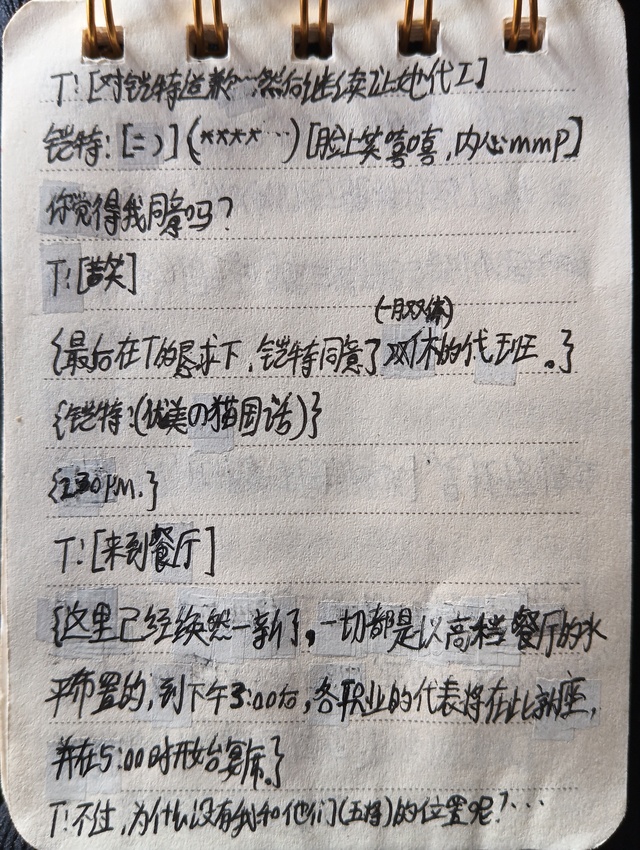 T:[对铠特道歉…然后继续让她代工]
铠特:[=)](****…)[脸上笑嘻嘻,内心mmp]
你觉得我同意吗?
T:[苦笑]
(一月双休)
{最后在T的恳求下,铠特同意了双休的代班。}
{铠特:(优美の猫国话)}
{2:30pm.}
T:[来到餐厅]
{这里已经焕然一新了,一切都是以高档餐厅的水
平布置的,到下午3:00后,各职业的代表将在此就座,
并在5:00时开始宴席。}
T:不过,为什么没有我和他们(五将)的位置呢?…